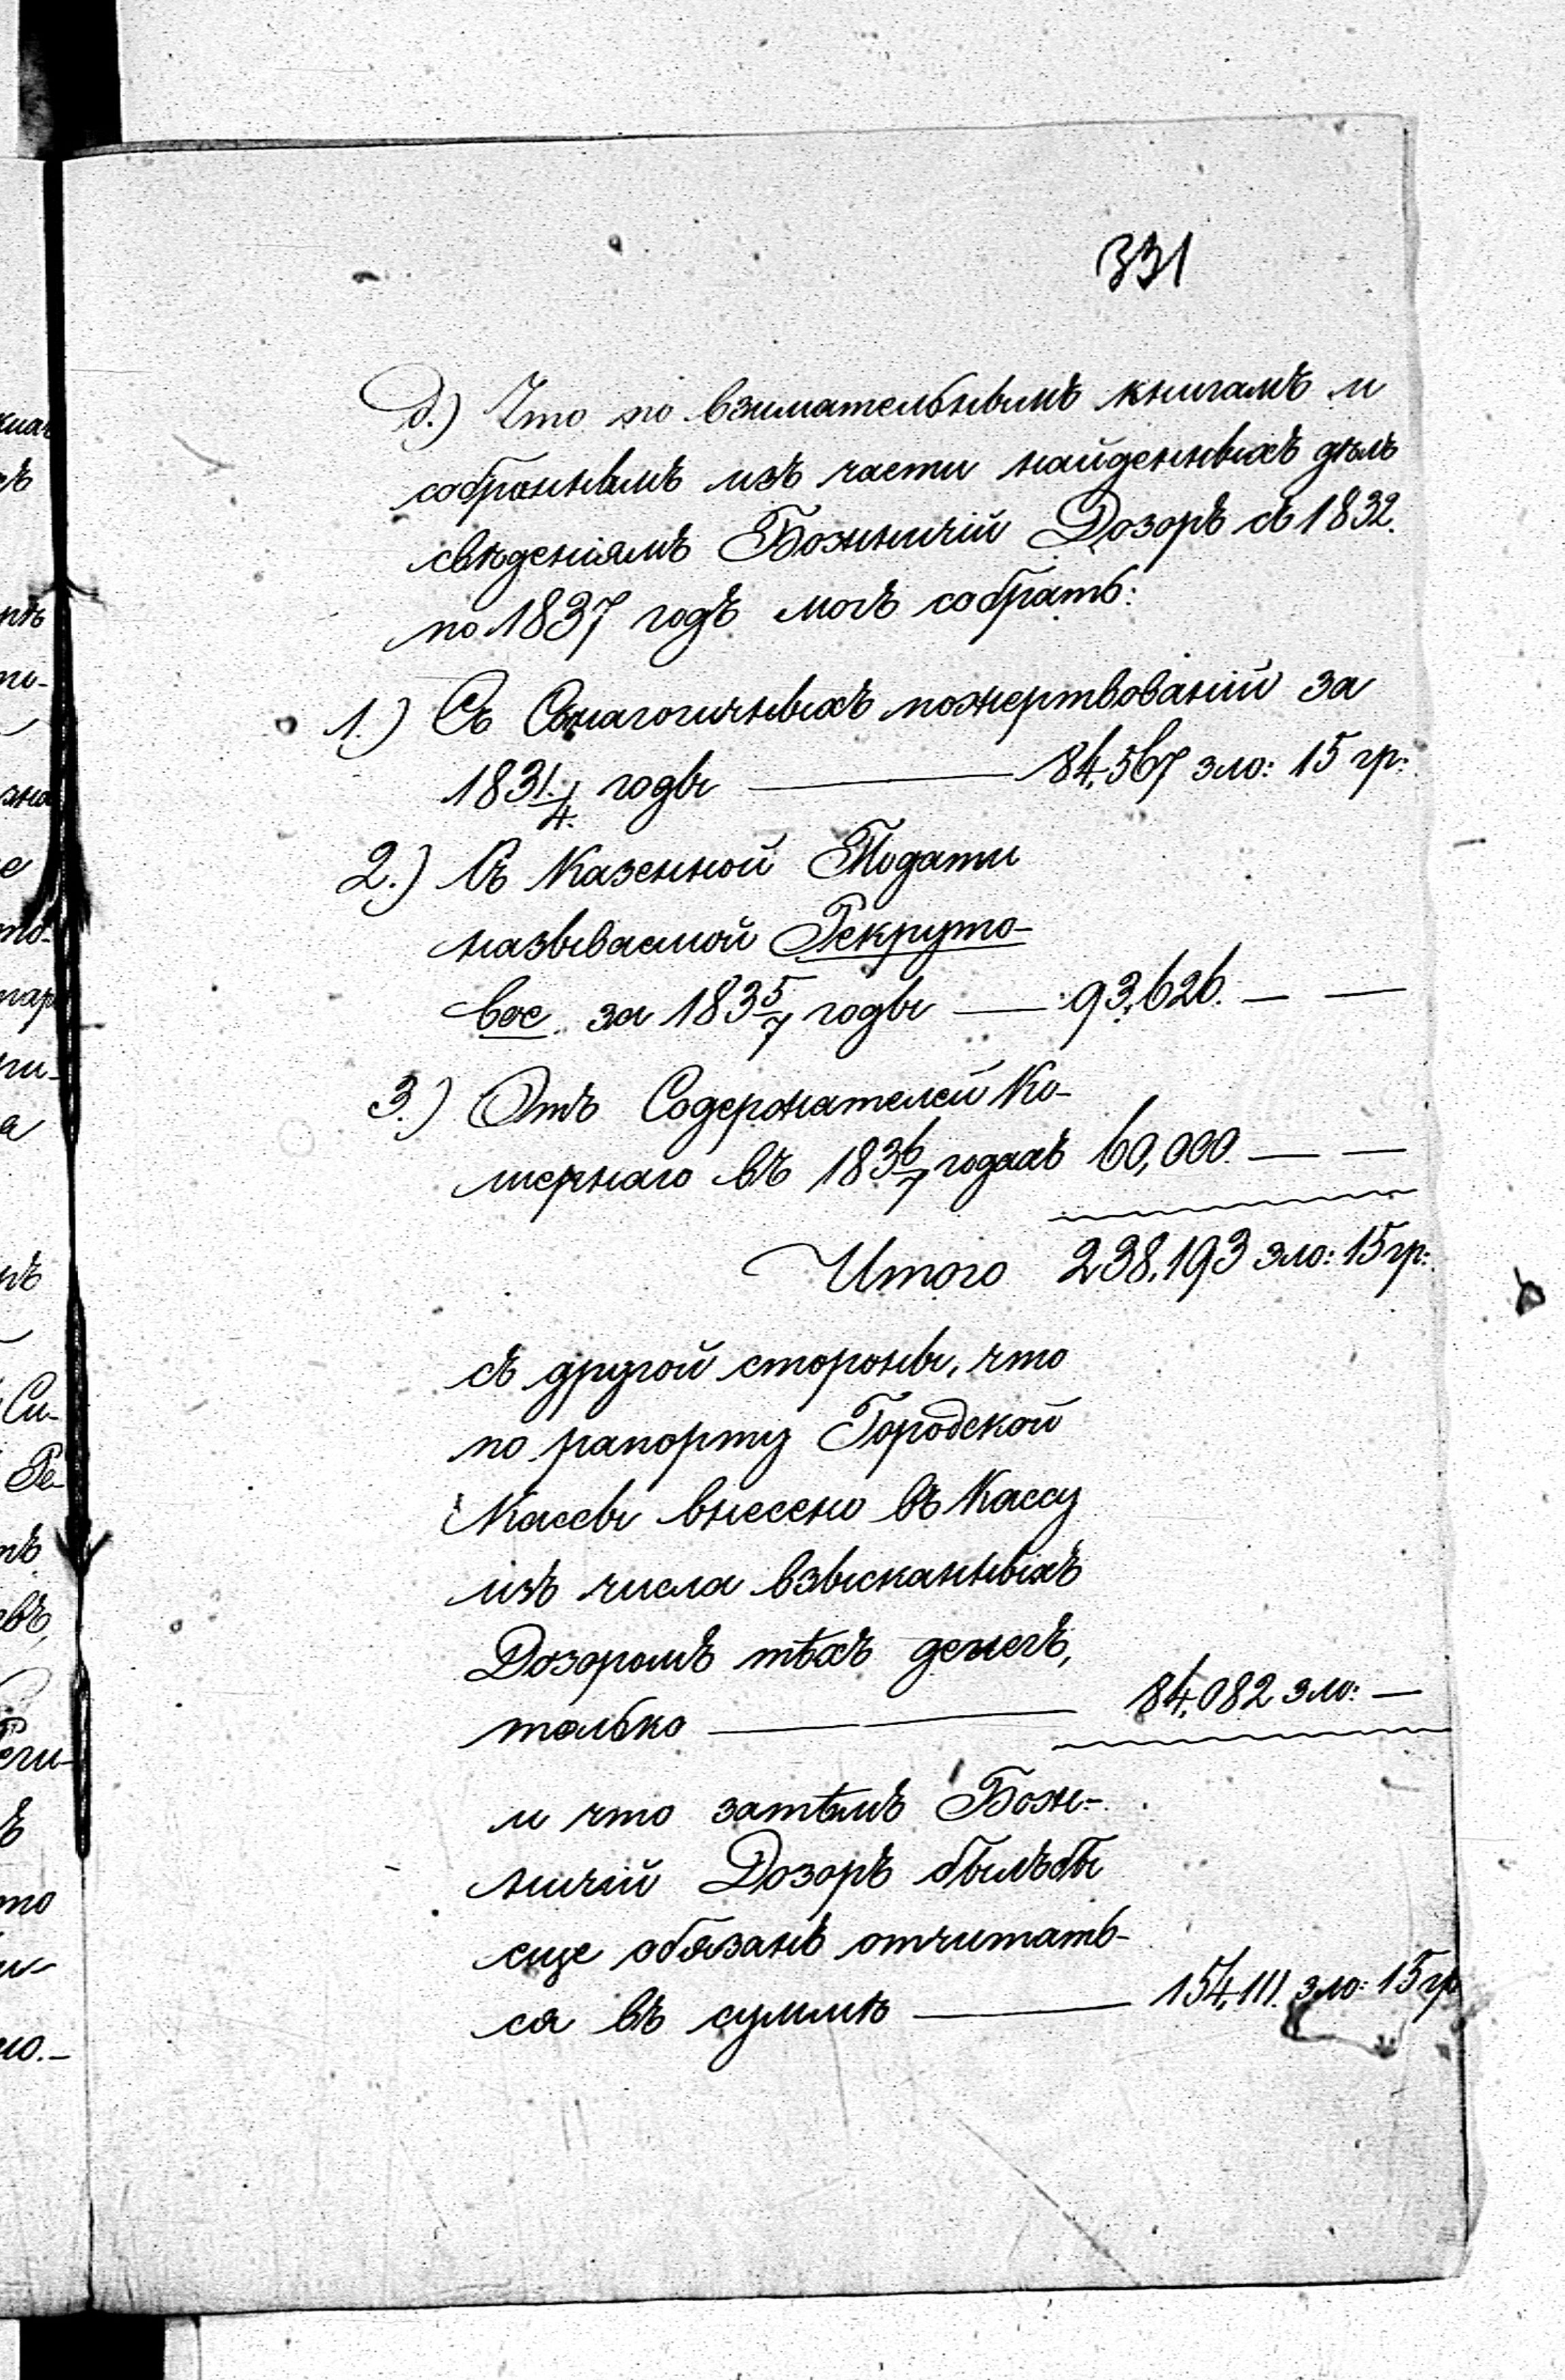 331
д.) Что по взимательнымъ книгамъ и
собраннымъ изъ части найденныхъ дѣлъ
свѣденіямъ Божничій Дозоръ съ 1832.
по 1837 годъ могъ собрать:
1.) Съ Сѵнагогичныхъ пожертвованій за
1831/4. годы — 84,567 зло: 15 гр:
2.) Съ Казенной Подати
называемой Рекруто-
вое за 1835/7 годы — 93,626. — —
3.) Отъ Содержателей Ко-
шернаго въ 1836/7 годахъ 60,000. — —
Итого 238,193 зло: 15 гр:
съ другой стороны, что
по рапорту Городской
Кассы внесено въ Кассу
изъ числа взысканныхъ
Дозоромъ тѣхъ денегъ,
только — 84,082 зло: —
и что затѣмъ Бож-
ничій Дозоръ былъбы
еще обязанъ отчитать-
ся въ суммѣ — 154,111. зло: 15 гр